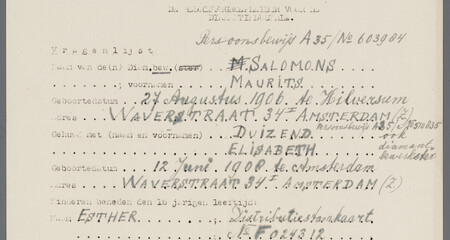 DIAMANTINDUSTRIE.
Persoonsbewijs A35/No 603904
Vragenlijst
Naam van de(n) Diam.bew. (ster) M. SALOMONS
; voornamen MAURITS.
Geboortedatum . 27 Augustus 1906. te Hilversum
Adres WAVERSTRAAT 34 I AMSTERDAM (Z)
Gehuwd met (naam en voornamen) DUIZEND. Persoonsbewijs A35/No
ELISABETH. ook diamantbewerkster
Geboortedatum . 12 Juni 1908 te Amsterdam
Adres WAVERSTRAAT 34 I AMSTERDAM (Z)
Kinderen beneden den 16 jarigen leeftijd:
Naam ESTHER Distributiestamkaart.
No F. 024312